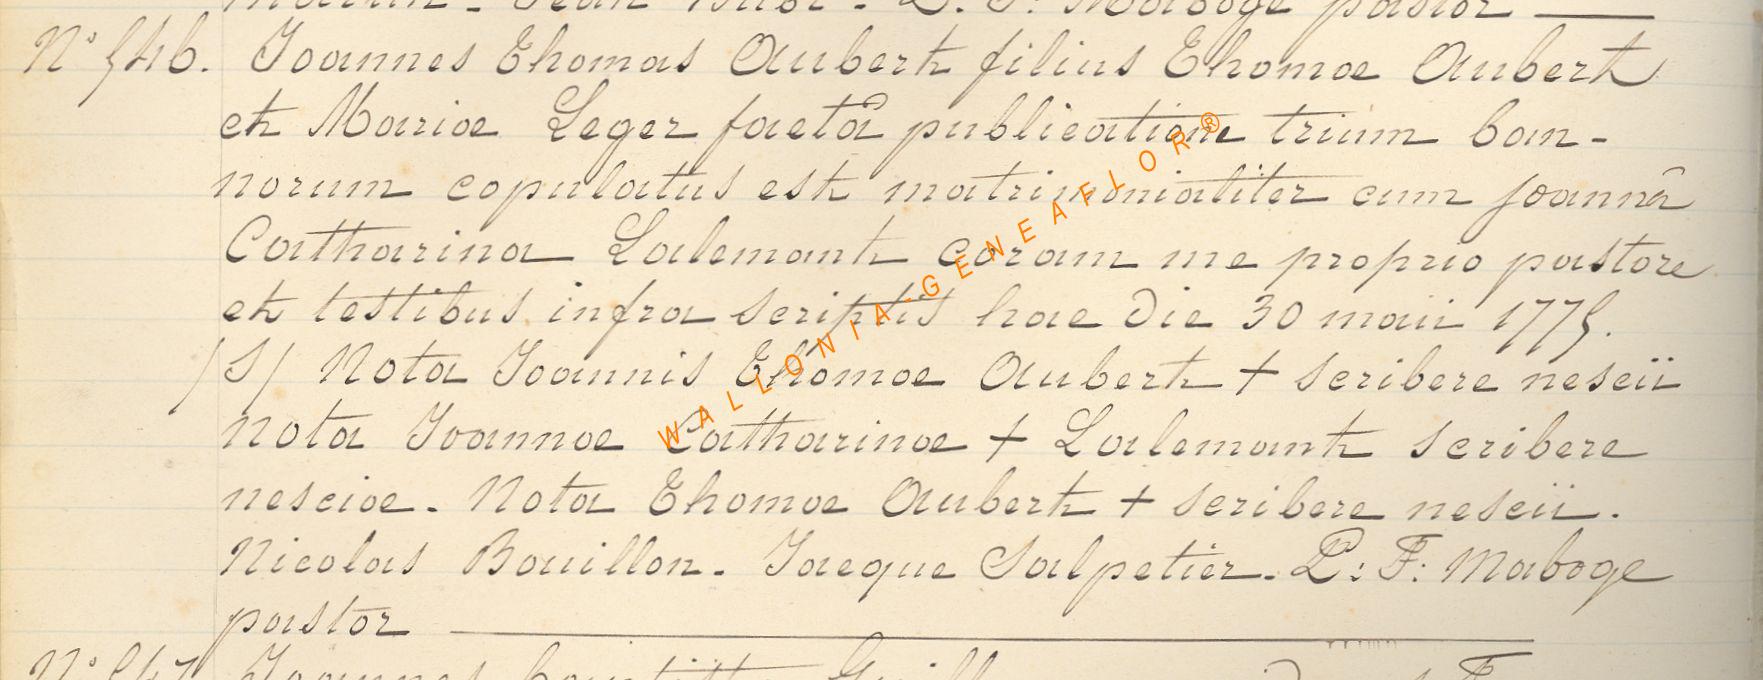 Martin - Jean Hubt - L. F. Maboge pastor
N° 546. Joannes Thomas Aubert filius Thomae Aubert
et Mariae Leger factâ publicatione trium ban-
norum copulatus est matrimonialiter cum joannâ
Catharina Lalemant coram me proprio pastore
et testibus infra scriptis hac die 30 maii 1775.
/S/ Nota Joannis Thomae Aubert + scribere nescii
nota Joannae Catharinae + Lalemant scribere
nesciae. Nota Thomae Aubert + scribere nescii.
Nicolas Bouillon. Jacque Salpetier. L: F: Maboge
pastor
N° 547 Joannes
WALLONIA-GENEAFLOR®